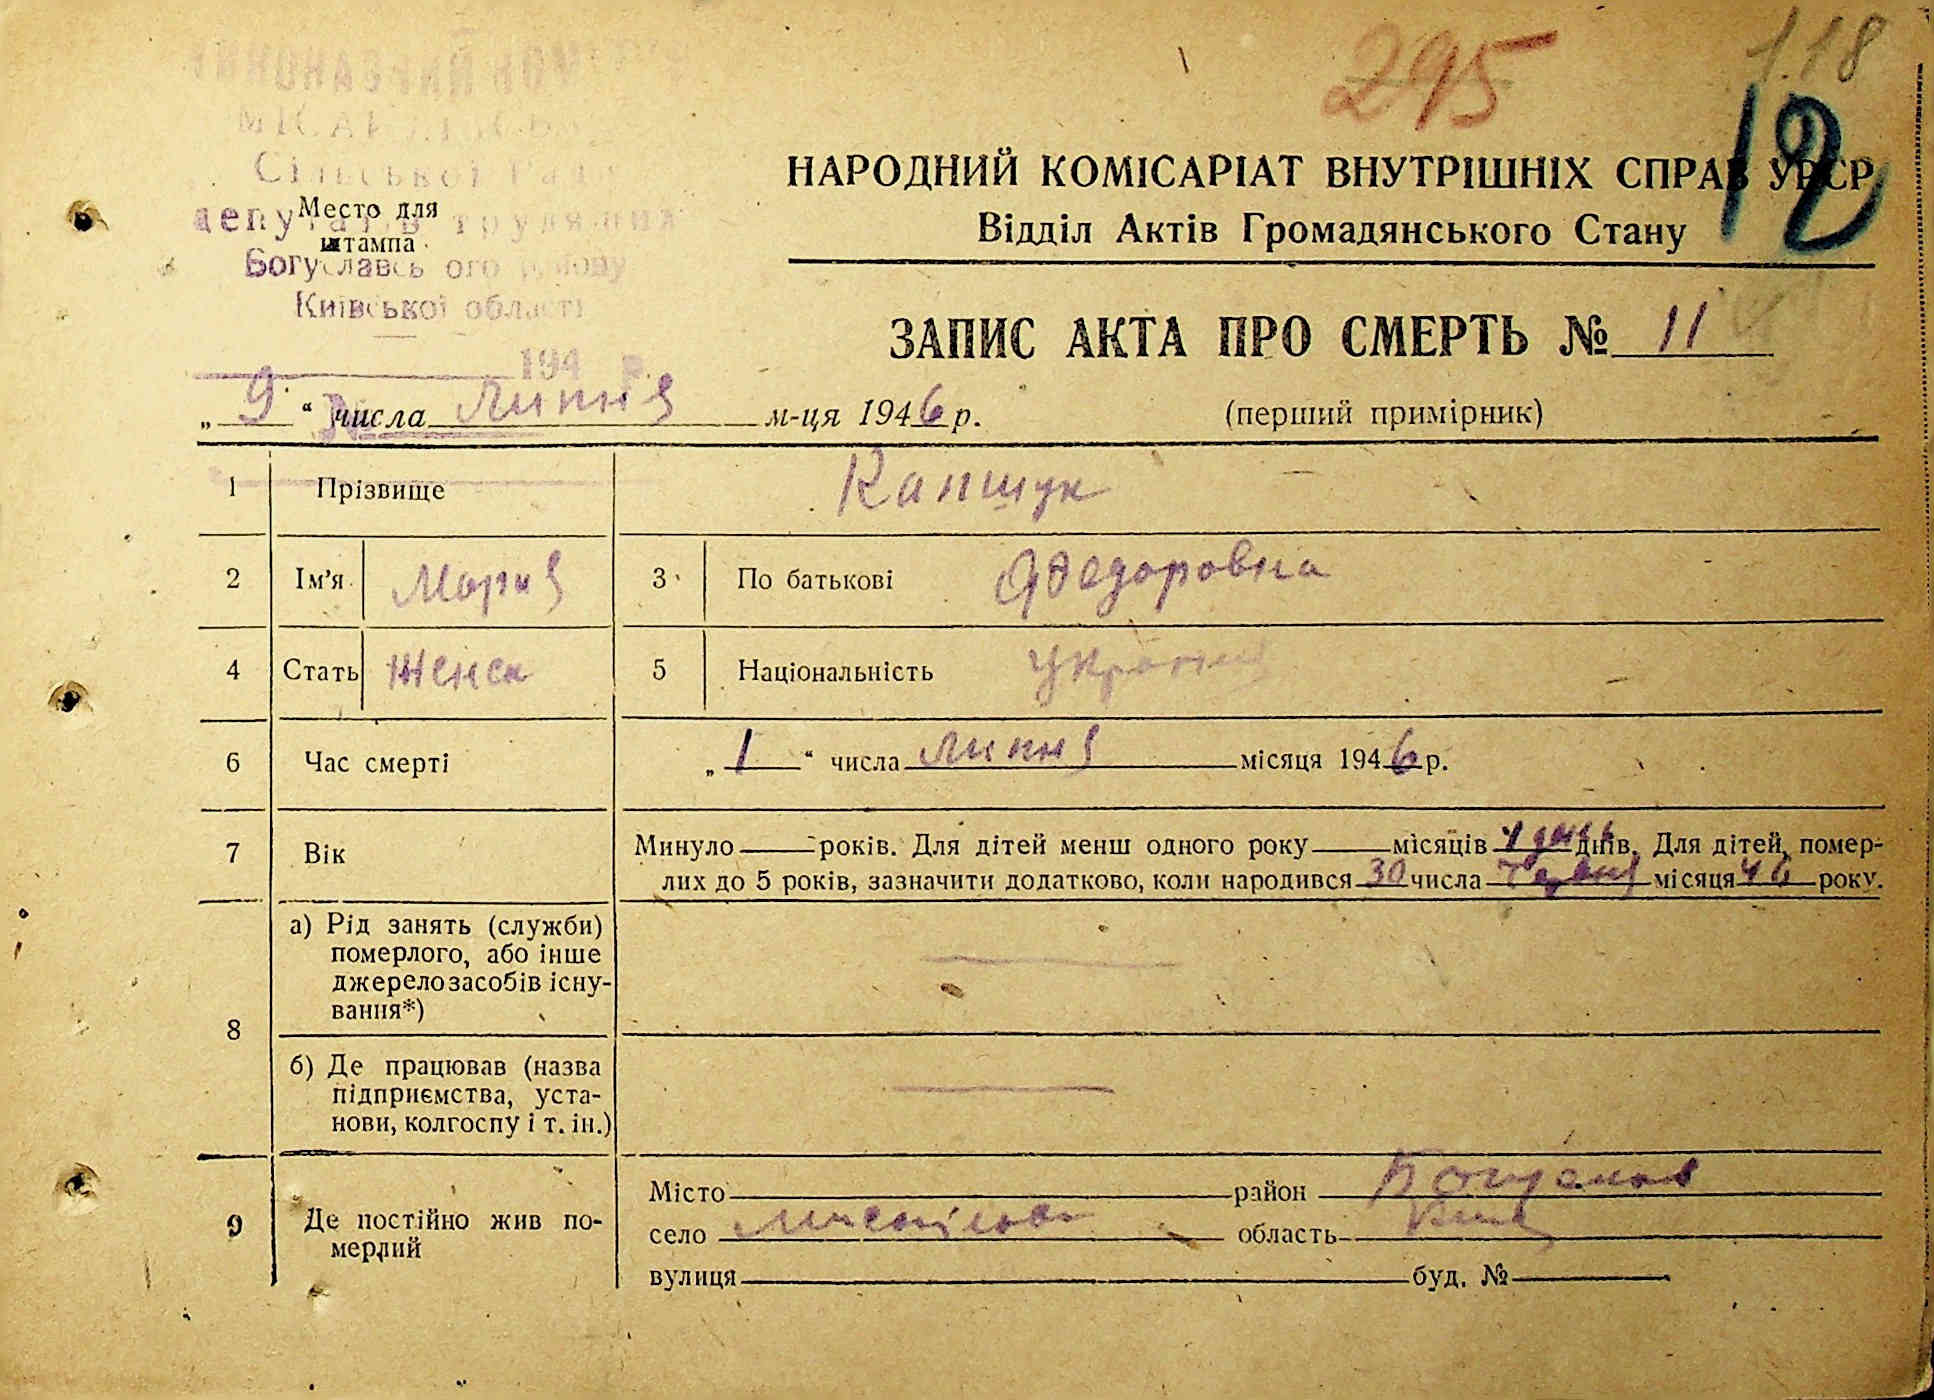 295
118
12
НАРОДНИЙ КОМІСАРІАТ ВНУТРІШНІХ СПРАВ УРСР
Відділ Актів Громадянського Стану
Сільської Ради
депутатів трудящих
Место для
штампа
Богуславсь ого району
Київської області
194 р.
№
ЗАПИС АКТА ПРО СМЕРТЬ № 11
„ 9 “ числа липня м-ця 1946 р.
(перший примірник)
1 Прізвище Капшук
2 Ім'я Мария 3 По батькові Федоровна
4 Стать Женск 5 Національність
6 Час смерті „ 1 “ числа липня місяця 1946 р.
7 Вік Минуло років. Для дітей менш одного року місяців днів. Для дітей, помер-
лих до 5 років, зазначити додатково, коли народився 30 числа місяця 46 року.
8 а) Рід занять (служби)
померлого, або інше
джерело засобів існу-
вання*)
б) Де працював (назва
підприємства, уста-
нови, колгоспу і т. ін.)
9 Де постійно жив по-
мерлий
Місто район
село область
вулиця буд. №